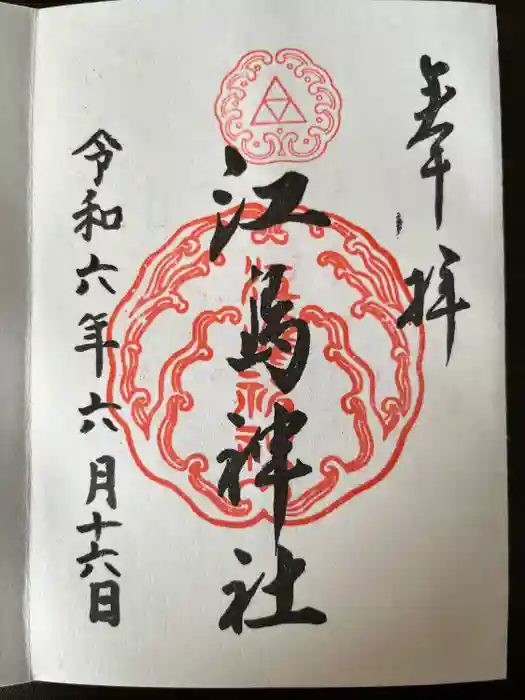 奉拝
江島神社
令和六年六月十六日